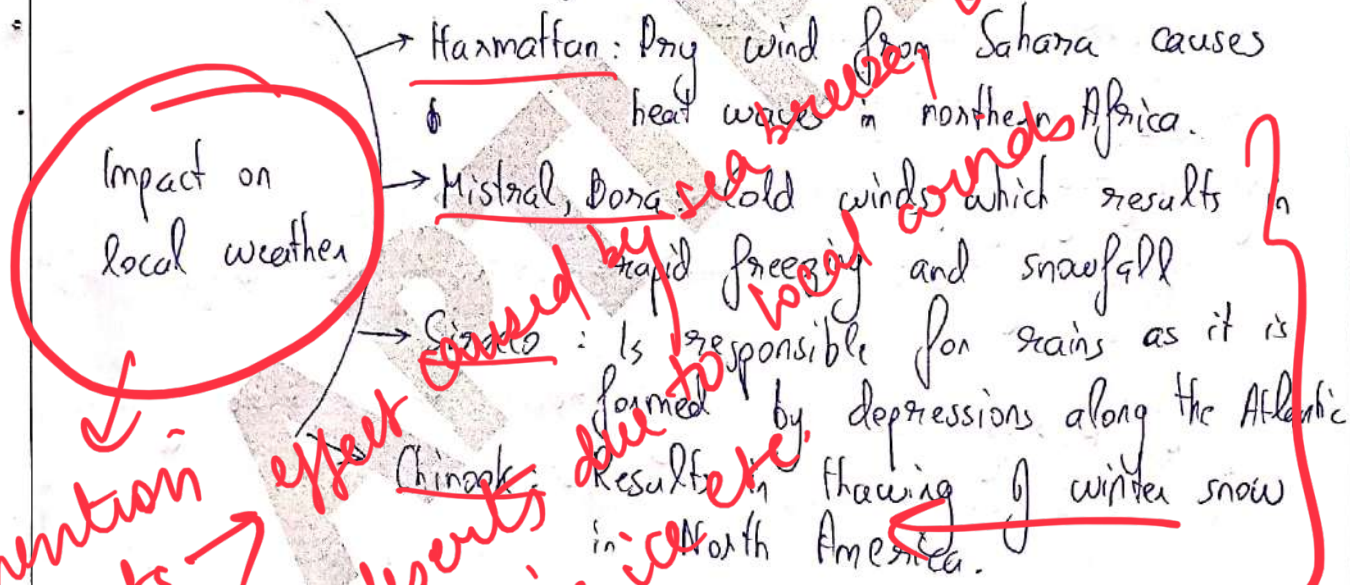 Harmattan : Dry wind from Sahara causes
heat waves in northern Africa.
Impact on
local weather
Mistral, Bora : Cold winds which results in
rapid freezing and snowfall
Sirocco : Is responsible for rains as it is
formed by depressions along the Atlantic
Chinook : Results in thawing of winter snow
in North America.
mention
effect caused by sea breeze,
deserts due to local winds
ice etc.